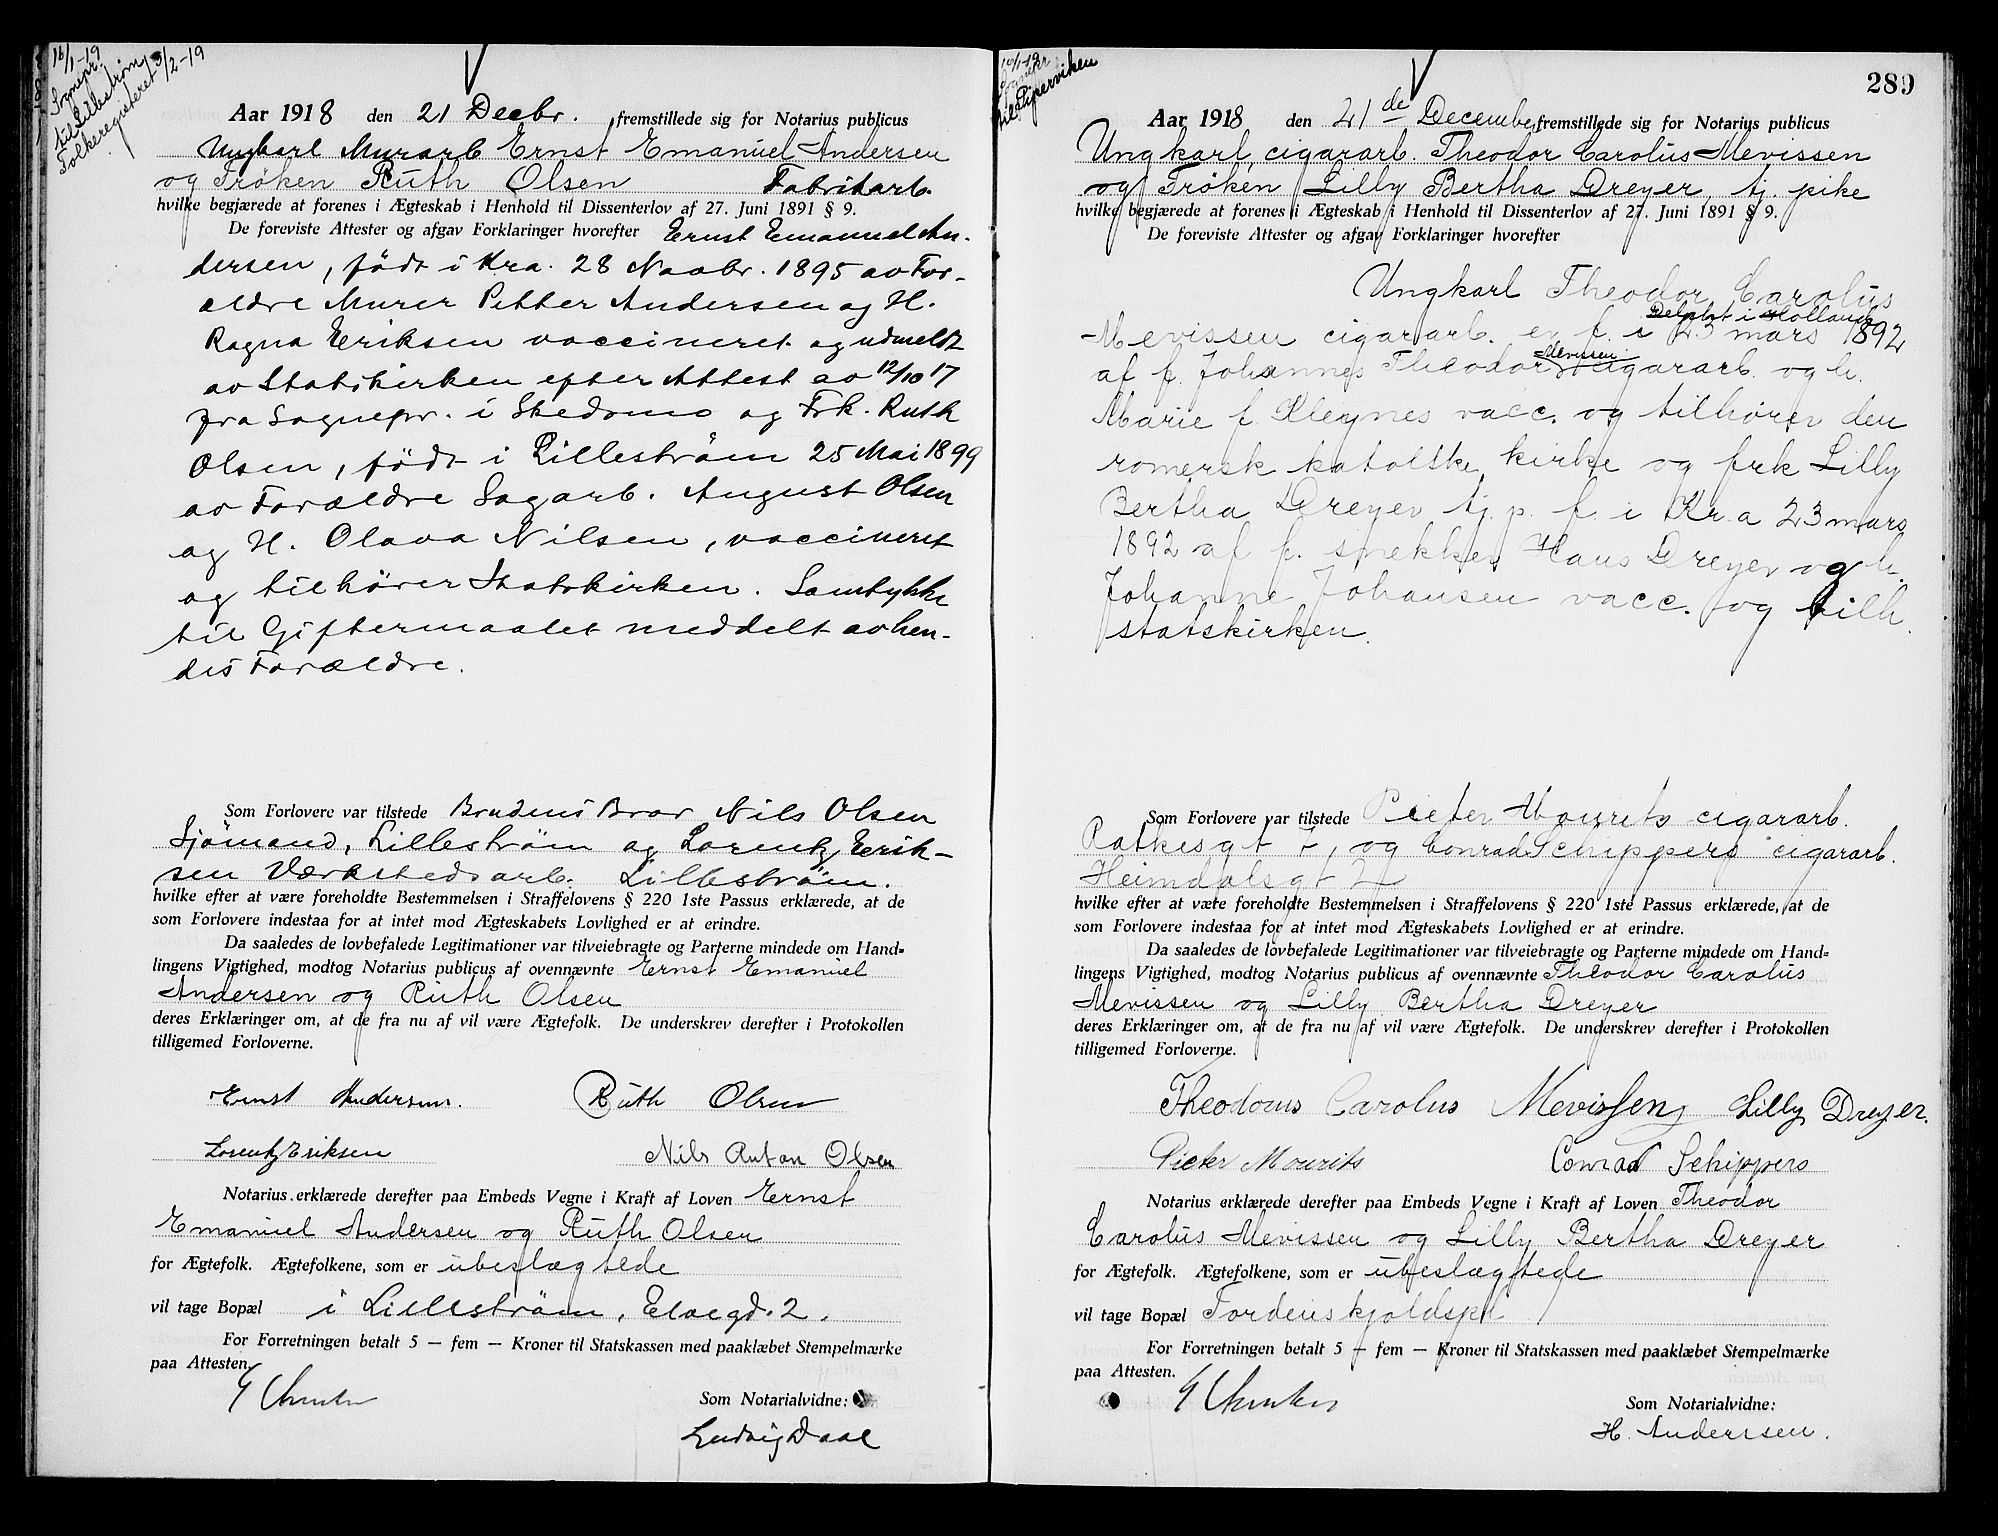 16/1-19
Sognepr.
til Lillestrøm
Folkeregisteret 3/2-19
Aar 1918 den 21 Decbr. fremstillede sig for Notarius publicus
Ungkarl Murarb Ernst Emanuel Andersen
og Frøken Ruth Olsen Fabrikarb.
hvilke begjærede at forenes i Ægteskab i Henhold til Dissenterlov af 27. Juni 1891 § 9.
De foreviste Attester og afgav Forklaringer hvorefter Ernst Emanuel An-
dersen, født i Kra. 28 Novbr. 1895 av For-
ældre Murer Petter Andersen og H.
Ragna Eriksen vaccineret og udmeldt
av Statskirken efter Attest av 12/10 17
fra Sognepr. i Skedsmo og Frk. Ruth
Olsen, født i Lillestrøm 25 Mai 1899
av Forældre Sagarb. August Olsen
og H. Olava Nilsen, vaccineret
og tilhører Statskirken. Samtykke
til Giftermaalet meddelt av hen-
des Forældre.
Som Forlovere var tilstede Brudens Bror Nils Olsen
Sjømand, Lillestrøm og Lorentz Erik-
sen Værkstedsarb. Lillestrøm.
hvilke efter at være foreholdte Bestemmelsen i Straffelovens § 220 1ste Passus erklærede, at de
som Forlovere indestaa for at intet mod Ægteskabets Lovlighed er at erindre.
Da saaledes de lovbefalede Legitimationer var tilveiebragte og Parterne mindede om Hand=
lingens Vigtighed, modtog Notarius publicus af ovennævnte Ernst Emanuel
Andersen og Ruth Olsen
deres Erklæringer om, at de fra nu af vil være Ægtefolk. De underskrev derefter i Protokollen
tilligemed Forloverne.
Ernst Andersen. Ruth Olsen
Lorentz Eriksen Nils Anton Olsen
Notarius erklærede derefter paa Embeds Vegne i Kraft af Loven Ernst
Emanuel Andersen og Ruth Olsen
for Ægtefolk. Ægtefolkene, som er ubeslægtede
vil tage Bopæl i Lillestrøm, Elvegd. 2.
For Forretningen betalt 5 — fem — Kroner til Statskassen med paaklæbet Stempelmærke
paa Attesten.
Som Notarialvidne:
Ludvig Daae
289
til Piperviken
Aar 1918 den 21de December fremstillede sig for Notarius publicus
Ungkarl, cigararb. Theodor Carolus Mevissen
og Frøken Lilly Bertha Dreyer, tj. pike
hvilke begjærede at forenes i Ægteskab i Henhold til Dissenterlov af 27. Juni 1891 § 9.
De foreviste Attester og afgav Forklaringer hvorefter
Ungkarl Theodor Carolus
i Holland
Mevissen cigararb. er f. i 23 mars 1892
Mevissen
af f. Johannes Theodor cigararb. og h.
Marie f. Kleynes vacc. og tilhører den
romersk katolske kirke og frk Lilly
Bertha Dreyer tj. p. f. i Kr.a 23 mars
1892 af f. snekker Hans Dreyer og h.
Johanne Johansen vacc. og tilh.
statskirken.
Som Forlovere var tilstede Pieter Mourits cigararb.
og Conrad Schippers cigararb.
Heimdalsgt 2
hvilke efter at være foreholdte Bestemmelsen i Straffelovens § 220 1ste Passus erklærede, at de
som Forlovere indestaa for at intet mod Ægteskabets Lovlighed er at erindre.
Da saaledes de lovbefalede Legitimationer var tilveiebragte og Parterne mindede om Hand=
lingens Vigtighed, modtog Notarius publicus af ovennævnte Theodor Carolus
Mevissen og Lilly Bertha Dreyer
deres Erklæringer om, at de fra nu af vil være Ægtefolk. De underskrev derefter i Protokollen
tilligemed Forloverne.
Theodorus Carolus Mevissen Lilly Dreyer.
Pieter Mourits Conrad Schippers
Notarius erklærede derefter paa Embeds Vegne i Kraft af Loven Theodor
Carolus Mevissen og Lilly Bertha Dreyer
for Ægtefolk. Ægtefolkene, som er ubeslægtede
vil tage Bopæl Tordenskjoldspl
For Forretningen betalt 5 — fem — Kroner til Statskassen med paaklæbet Stempelmærke
paa Attesten.
Som Notarialvidne:
H. Anderssen.